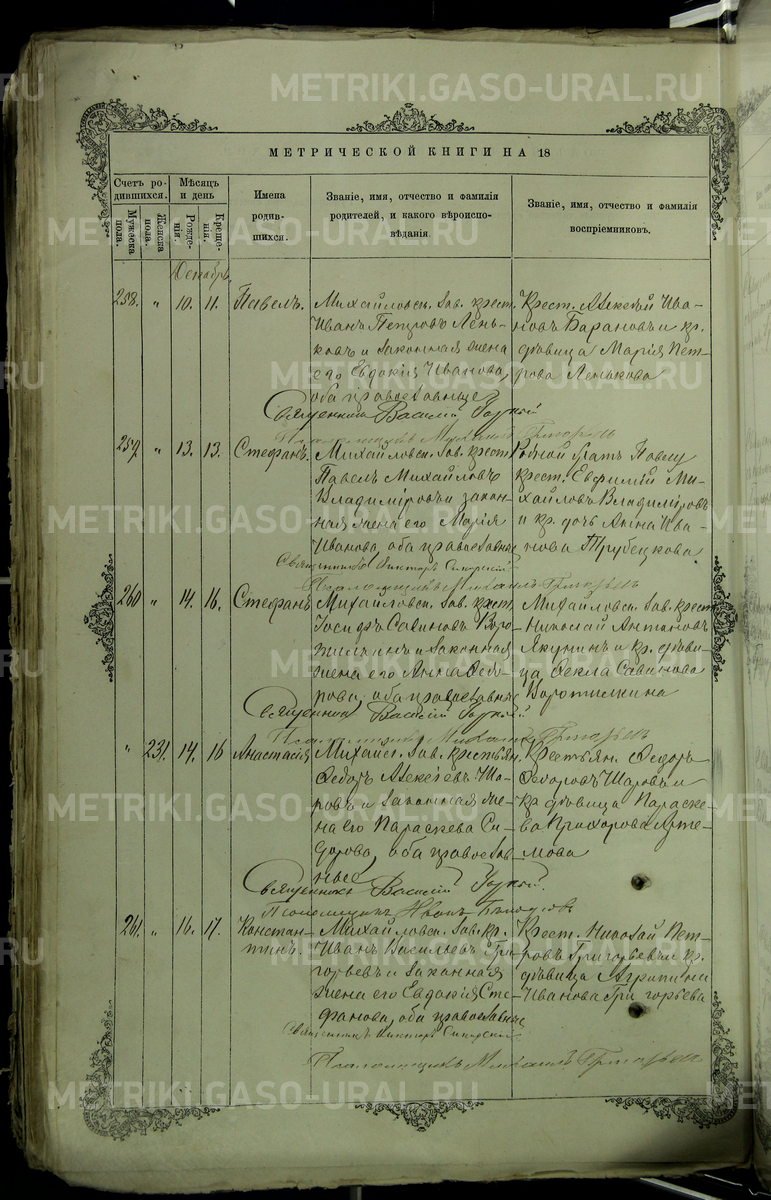 METRIKI.GASO-URAL.RU
МЕТРИЧЕСКОЙ КНИГИ НА 18
Счетъ ро-
дившихся.
Мужеска
пола.
Женска
пола.
Мѣсяцъ
и день
Рожде-
нія.
Креще-
нія.
Имена
родив-
шихся.
Званіе, имя, отчество и фамилія
родителей, и какого вѣроиспо-
вѣданія.
Званіе, имя, отчество и фамилія
воспріемниковъ.
Декабрь
258. " 10. 11. Павелъ.
Михайловск. зав. крест.
Иванъ Петровъ Лень-
ковъ и законная жена
его Евдокія Иванова,
оба православные
Крест. Алексѣй Ива-
новъ Барановъ и кр.
дѣвица Марія Пет-
рова Ленькова
Священникъ Василій
Псаломщикъ Михаилъ Григорьевъ
259. " 13. 13. Стефанъ.
Михайловск. зав. крест.
Павелъ Михайловъ
Владиміровъ и закон-
ная жена его Марія
Иванова, оба православные
Родной братъ Павлу
крест. Евфимій Ми-
хайловъ Владиміровъ
и кр. дочь Анна Ива-
нова Трубецкова
Священникъ Викторъ
Псаломщикъ Михаилъ Григорьевъ
260 " 14. 16. Стефанъ
Михайловск. зав. крест.
Іосифъ Савиновъ Воро-
тилкинъ и законная
жена его Анна Ѳедо-
рова, оба православные
Михайловск. зав. крест.
Николай Антоновъ
Якунинъ и кр. дѣви-
ца Ѳекла Савинова
Воротилкина
Священникъ Василій
Псаломщикъ Михаилъ Григорьевъ
" 231. 14. 16 Анастасія
Михайл. зав. крестьян.
Ѳедоръ Алексѣевъ Ша-
ровъ и законная же-
на его Параскева Си-
дорова, оба православ-
ные
Крестьян. Ѳедоръ
Ѳедоровъ Шаровъ и
кр. дѣвица Параске-
ва Прохорова Арте-
мова
Священникъ Василій
Псаломщикъ Иванъ
261. " 16. 17. Констан-
тинъ.
Михайловск. зав. кр.
Иванъ Васильевъ Гри-
горьевъ и законная
жена его Евдокія Сте-
фанова, оба православные
Крест. Николай Пет-
ровъ Григорьевъ и кр.
дѣвица Агрипина
Иванова Григорьева
Священникъ Викторъ
Псаломщикъ Михаилъ Григорьевъ